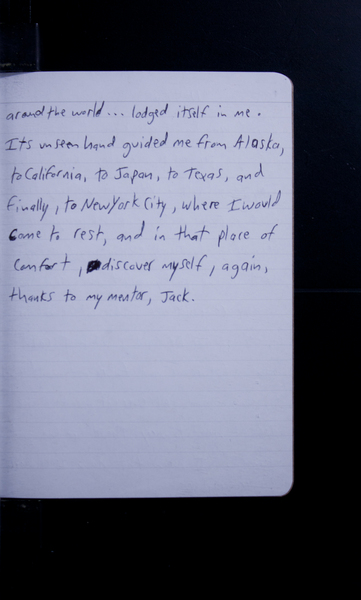 around the world... lodged itself in me.
Its unseen hand guided me from Alaska,
to California, to Japan, to Texas, and
finally, to New York City, where I would
come to rest, and in that place of
comfort, discover myself, again,
thanks to my mentor, Jack.